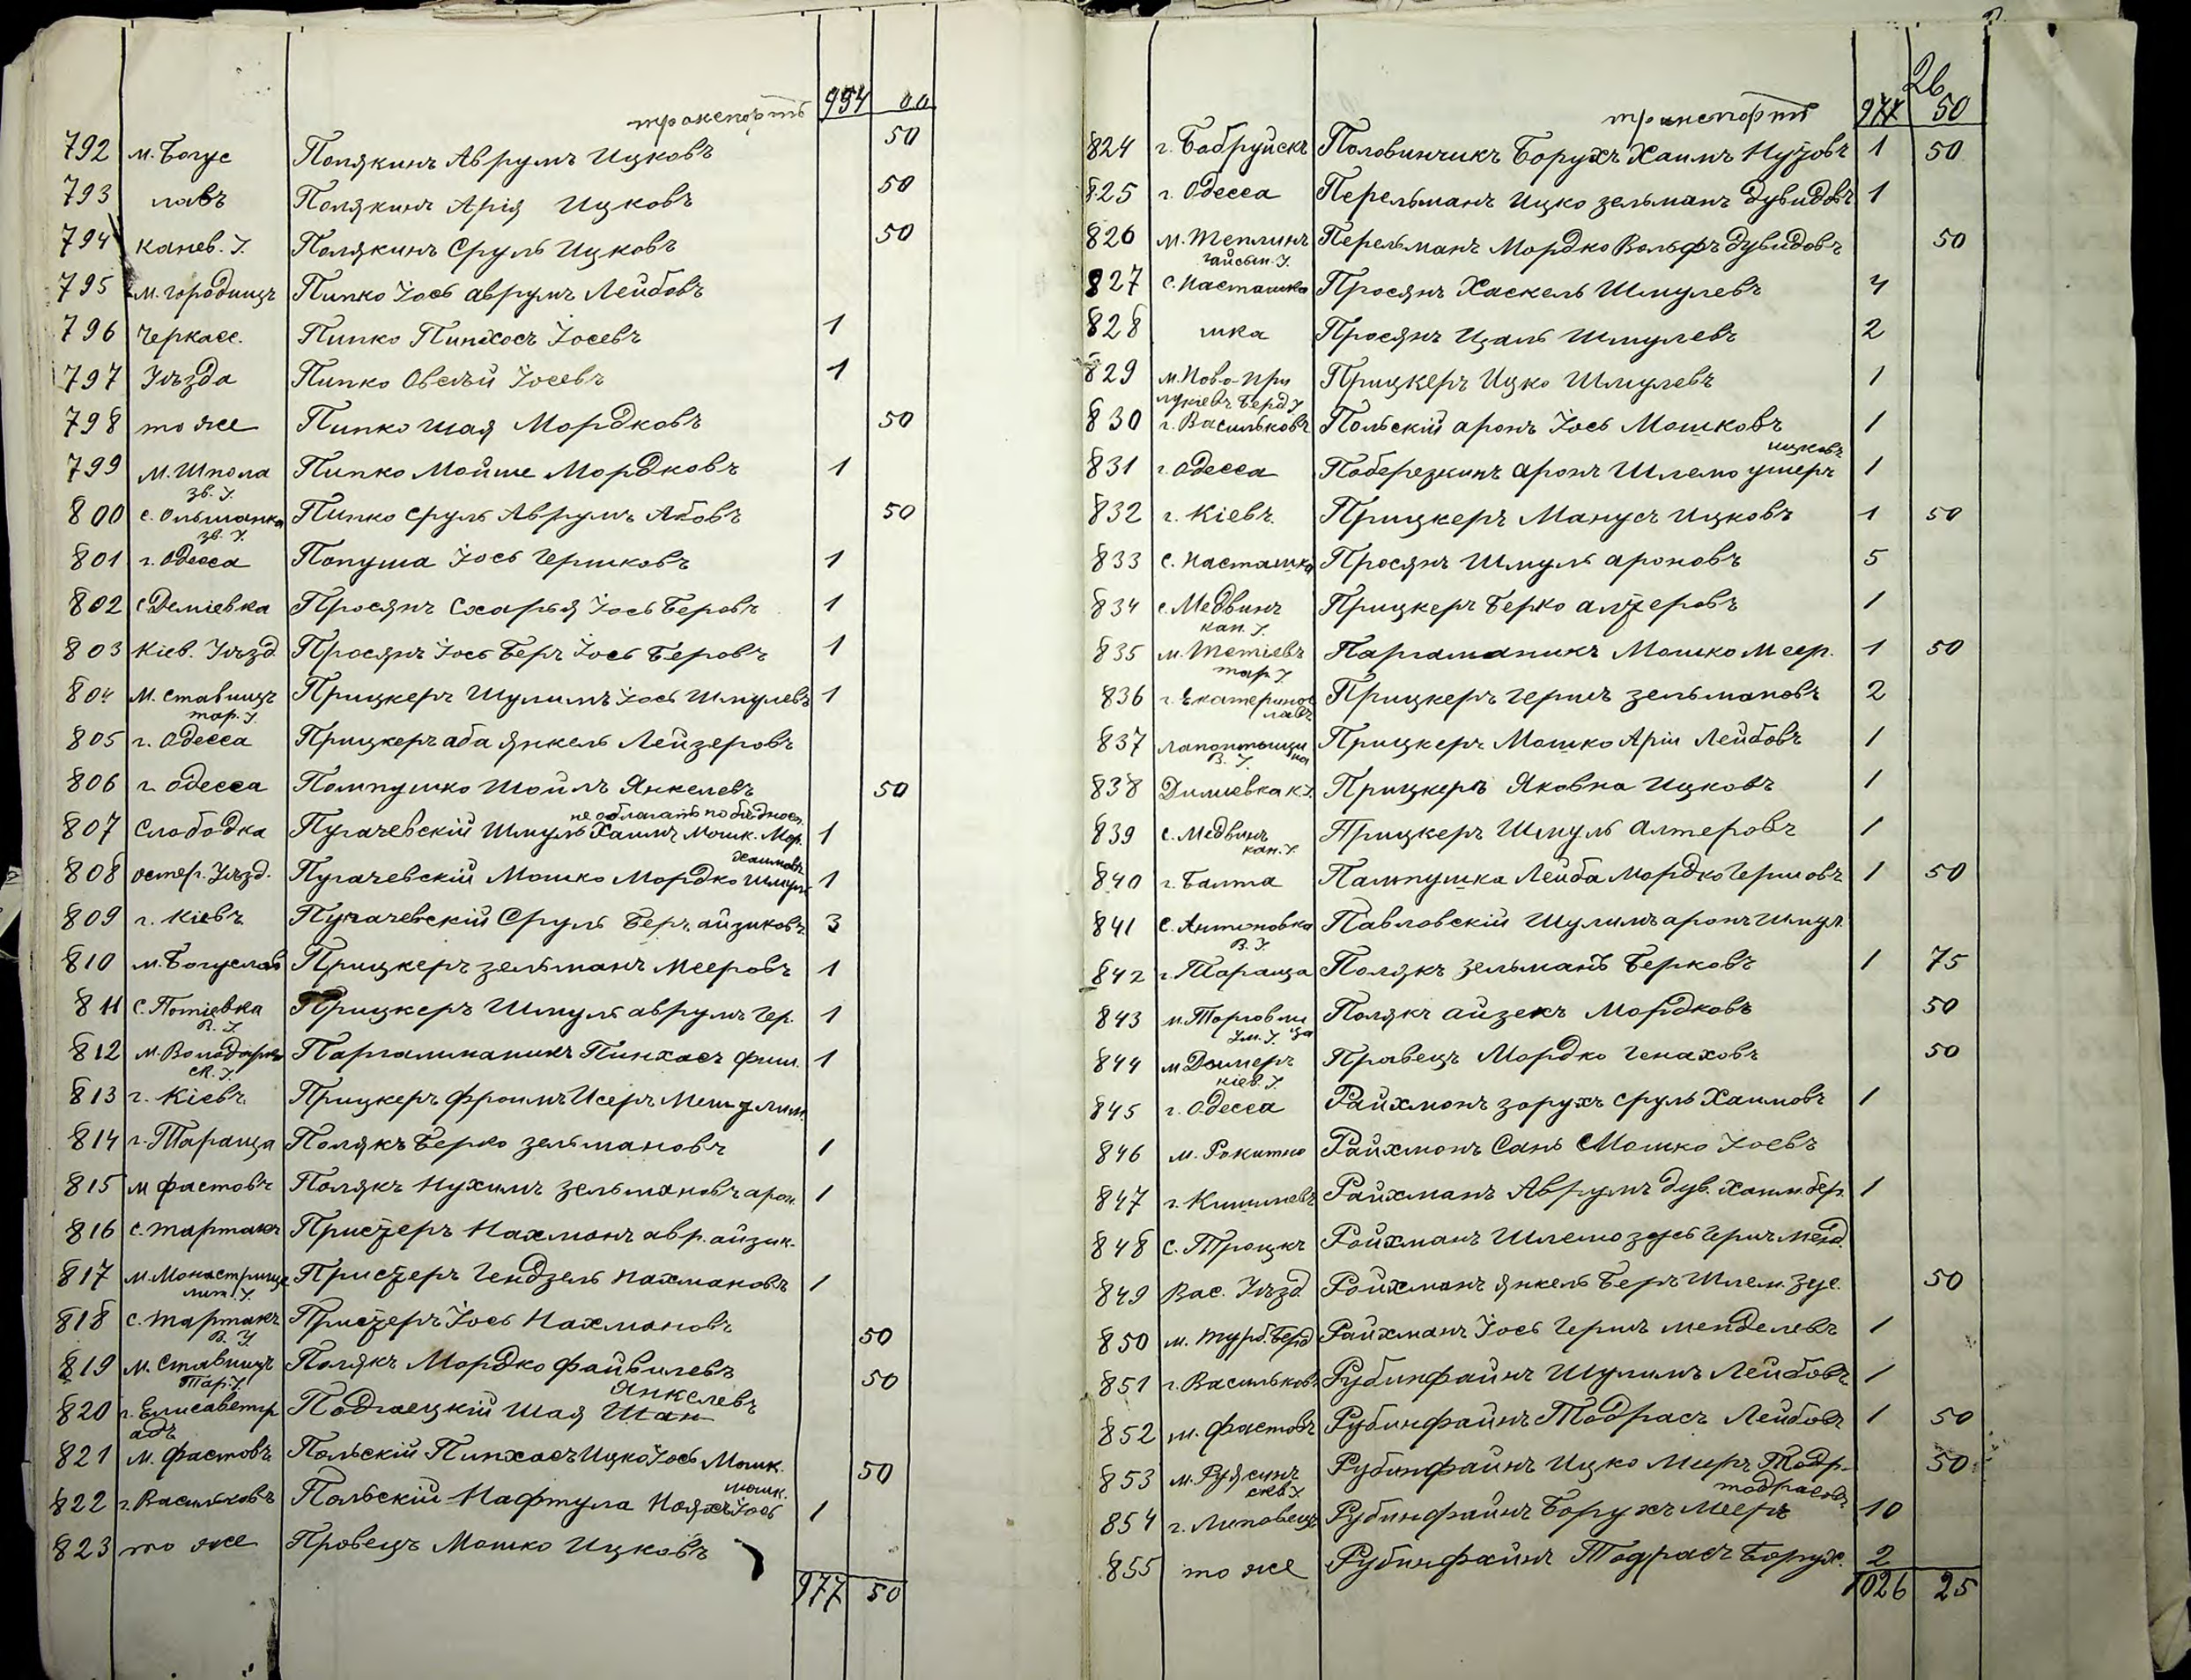 транспортъ 954 00
792 м. Богус Полякинъ Аврумъ Ицковъ 50
793 лавъ Полякинъ Арія Ицковъ 50
794 Канев. У. Полякинъ Сруль Ицковъ 50
795 м. Городищъ Пипко Іось Аврумъ Лейбовъ
796 Черкасс. Пипко Пинхосъ Іосевъ 1
797 Уѣзда Пипко Овсѣй Іосевъ 1
798 то же Пипко Шая Мордковъ 50
799 м. Шпола Пипко Мойше Мордковъ 1
зв. У.
800 с. Ольшанка Пипко Сруль Аврумъ Абовъ 50
зв. У.
801 г. Одесса Попуша Іось Гершковъ 1
802 с Деміевка Просянъ Схарья Іось Беровъ 1
803 Кіев. Уѣзд. Просянъ Іось Беръ Іось Беровъ 1
804 м. Ставищъ Прицкеръ Шулимъ Іось Шмулевъ 1
тар. У.
805 г. Одесса Прицкеръ Аба Янкель Лейзеровъ
806 г. Одесса Помпушко Шоилъ Янкелевъ 50
не облагать по бѣдност.
807 Слободка Пугачевскій Шмуль Хаимъ Мошк. Мор. 1
Хаимовъ
808 остер. Уѣзд. Пугачевскій Мошко Мордко Шмул 1
809 г. Кіевъ Пугачевскій Сруль Беръ Айзиковъ 3
810 м. Богуслав Прицкеръ Зельманъ Мееровъ 1
811 с. Потіевка Прицкеръ Шмуль Аврумъ Гер. 1
В. У.
812 м. Володарка Паргаминикъ Пинхасъ Фиш. 1
ск. У.
813 г. Кіевъ Прицкеръ Фроимъ Исеръ Мешулим.
814 г. Тараща Полякъ Берко Зельмановъ 1
815 м Фастовъ Полякъ Нухимъ Зельмановъ Арон. 1
816 с. Тартакъ Присѣеръ Нахманъ Авр. Айзик.
817 м. Монастрище Присѣеръ Гендзель Нахмановъ 1
лип. У.
818 с. Тартакъ Присѣеръ Іось Нахмановъ 50
В. У
819 м. Ставищъ Полякъ Мордко Файвилевъ 50
Тар. У. Янкелевъ
820 г. Елисаветгр Подгаецкій Шая Шан
адъ
821 м. Фастовъ Польскій Пинхасъ Ицко Іось Мошк. 50
мошк.
822 г. Васильковъ Польскій Нафтула Нояхъ Іось 1
823 то же Провецъ Мошко Ицковъ
977 50
26
транспортъ 977 50
824 г. Бобруйскъ Половинчикъ Борухъ Хаимъ Нузовъ 1 50
825 г. Одесса Перельманъ Ицко Зельманъ Дувидовъ 1
826 м. Теплинъ Перельманъ Мордко Вольфъ Дувидовъ 50
гайсын. У.
827 с. Насташка Просянъ Хаскель Шмулевъ 4
828 шка Просянъ Цаль Шмулевъ 2
829 м. Ново-При Прицкеръ Ицко Шмулевъ 1
лукіевъ Берд У
830 г. Васильковъ Польскій Аронъ Іось Мошковъ 1
ицковъ
831 г. Одесса Поберезкинъ Аронъ Шлемо Ушеръ 1
832 г. Кіевъ. Прицкеръ Манусъ Ицковъ 1 50
833 с. Насташка Просянъ Шмуль Ароновъ 5
834 с. Медвинъ Прицкеръ Берко Алтеровъ 1
кан. У.
835 м. Тетіевъ Паргаманикъ Мошко Меер. 1 50
тар У
836 г. Екатеринос Прицкеръ Гершъ Зельмановъ 2
лавъ
837 Лапонтыщи Прицкеръ Мошко Арій Лейбовъ 1
В. У. на
838 Димиевка к.У. Прицкеръ Яковка Ицковъ 1
839 с. Медвинъ Прицкеръ Шмуль Алтеровъ 1
кан. У.
840 г. Балта Пампушка Лейба Мордко Гершовъ 1 50
841 с. Антоновка Павловскій Шулимъ Аронъ Шмул.
В. У.
842 г. Тараща Полякъ Зельманъ Берковъ 1 75
843 м. Торгови Полякъ Айзекъ Мордковъ 50
Ум. У. ца
844 м Дымеръ Провецъ Мордко Генаховъ 50
кіев. У.
845 г. Одесса Райхманъ Зорухъ Сруль Хаимовъ 1
846 м. Рокитно Райхманъ Сань Мошко Іосевъ
847 г. Кишиневъ Райхманъ Аврумъ Дув. Хаим. Бер. 1
848 с. Троцкъ Райхманъ Шлемо Зусь Гершъ Менд.
849 Вас. Уѣзд. Райхманъ Янкель Беръ Шлем. Зус. 50
850 м. Турб. Берд Райхманъ Іось Гершъ Менделевъ 1
851 г. Васильковъ Рубинфайнъ Шулимъ Лейбовъ 1
852 м. Фастовъ Рубинфайнъ Тодрасъ Лейбовъ 1 50
853 м. Ружинъ Рубинфайнъ Ицко Меръ Тодр. 50
сквУ тодрасовъ
854 г. Липовецъ Рубинфайнъ Борухъ Мееръ 10
855 то же Рубинфайнъ Тодрасъ Борух. 2
1026 25